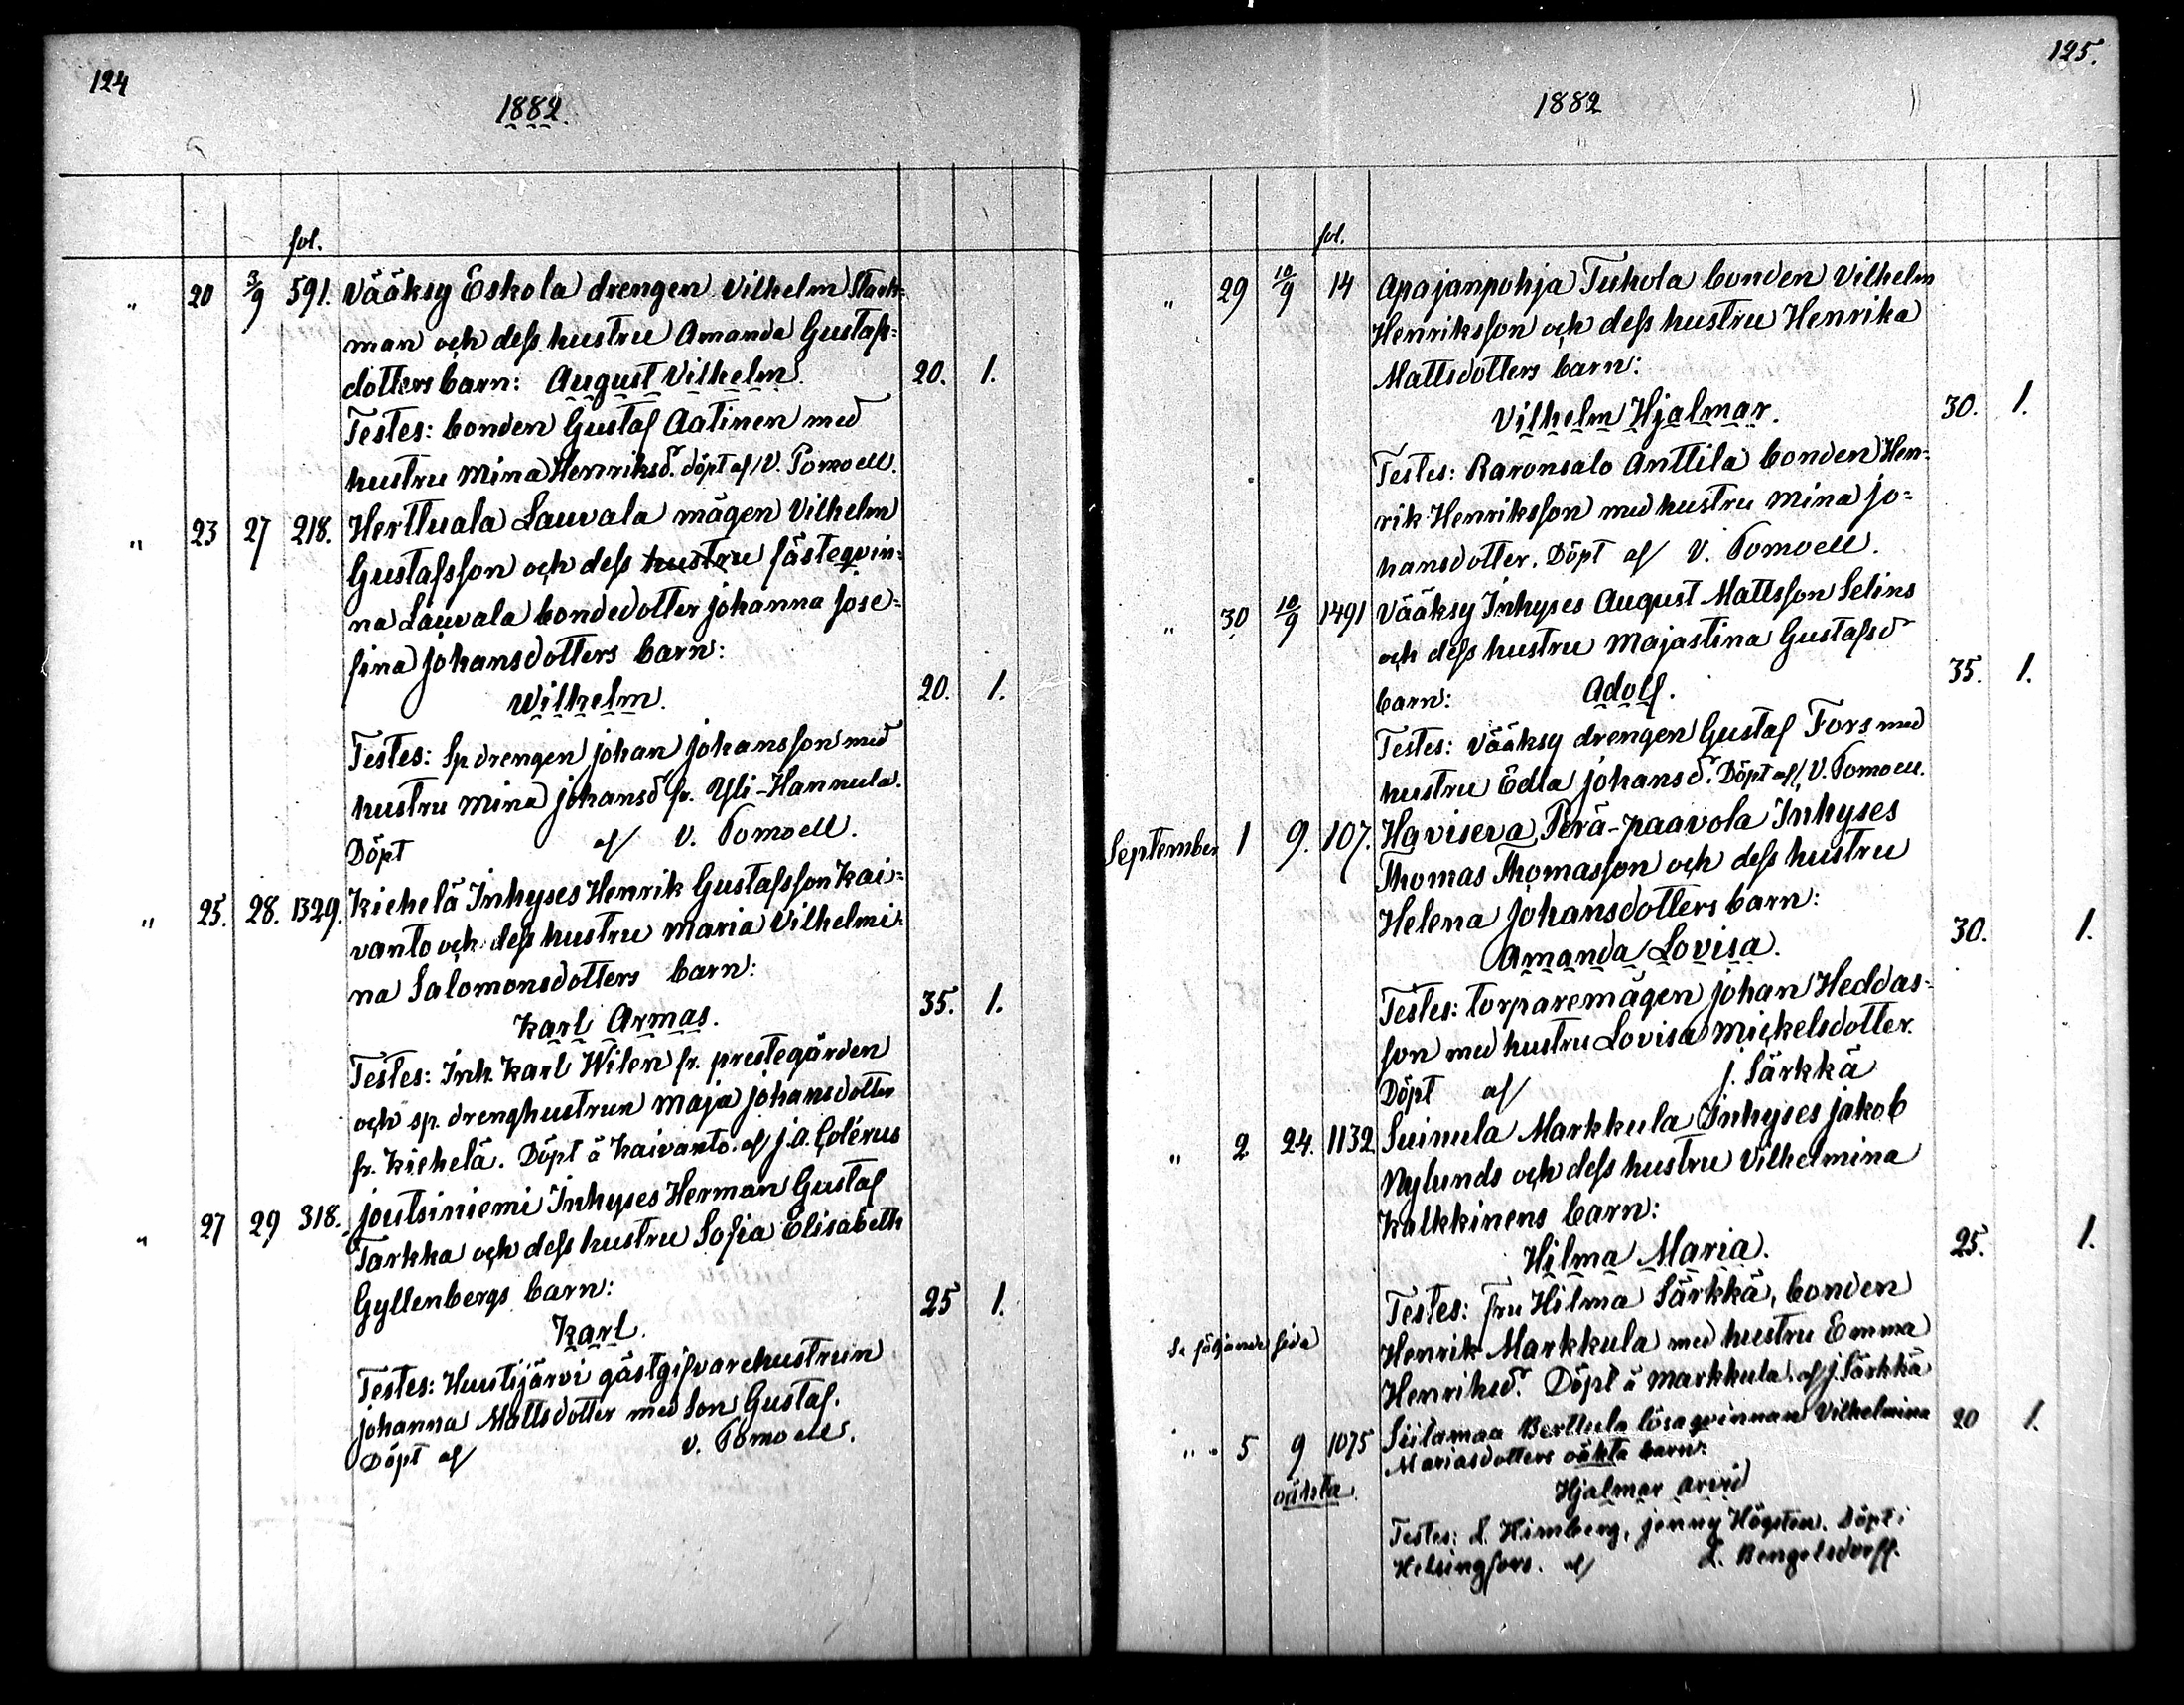 124
1882.
fol.
" 20 3/9 591. Vääksy Eskola drengen Vilhelm Stark=
man och dess hustru Amanda Gustafs=
dotters barn: August Vilhelm. 20. 1.
Testes: bonden Gustaf Aatinen med
hustru Mina Henriksd. döpt af V. Pomoell.
" 23 27 218. Herttuala Lauvala mågen Vilhelm
Gustafsson och dess hustru fästeqvin=
na Lauvala bondedotter Johanna Jose=
fina Johansdotters barn:
Wilhelm. 20. 1.
Testes: Sp drengen Johan Johansson med
hustru Mina Johansd fr. Yli-Hannula.
Döpt af V. Pomoell.
" 25. 28. 1329. Kiehelä Inhyses Henrik Gustafsson Kai=
vanto och dess hustru Maria Vilhelmi=
na Salomonsdotters barn:
Karl Armas. 35. 1.
Testes: Inh. Karl Wilen fr. prestegården
och sp. drenghustrun Maja Johansdotter
fr. Kiehelä. Döpt å Kaivanto. af J. A. Colérus
" 27 29 318. Joutsiniemi Inhyses Herman Gustaf
Tarkka och dess hustru Sofia Elisabeth
Gyllenbergs barn:
Karl. 25 1.
Testes: Huutijärvi gästgifvarehustrun
Johanna Mattsdotter med son Gustaf.
Döpt af V. Pomoell.
125.
1882
fol.
" 29 10/9 14 Apajanpohja Tuhola bonden Vilhelm
Henriksson och dess hustru Henrika
Mattsdotters barn:
Vilhelm Hjalmar. 30. 1.
Testes: Raronsalo Anttila bonden Hen=
rik Henriksson med hustru Mina Jo=
hansdotter. Döpt af V. Pomoell.
" 30 10/9 1491 Vääksy Inhyses August Mattsson Selins
och dess hustru Majastina Gustafsd
barn: Adolf. 35. 1.
Testes: Vääksy drengen Gustaf Fors med
hustru Edla Johansd. Döpt af V. Pomoell.
September 1 9. 107. Havisera Perä-paavola Inhyses
Thomas Thomasson och dess hustru
Helena Johansdotters barn:
Amanda Lovisa. 30. 1.
Testes: torparemågen Johan Heddas=
son med hustru Lovisa Mickelsdotter.
Döpt af J. Särkkä
" 2 24. 1132 Suinula Markkula Inhyses Jakob
Nylunds och dess hustru Vilhelmina
Kalkkinens barn:
Hilma Maria. 25. 1.
Testes: fru Hilma Särkkä, bonden
Se följande sida
Henrik Markkula med hustru Emma
Henriksd. Döpt å Markkula af J. Särkkä
" 5 9 1075 Siitamaa Berttula lösaqvinnan Vilhelmina 20 1.
Mariasdotters oäkta barn:
oäkta. Hjalmar Arvid
Testes: L. Himberg, Jenny Högsten. Döpt i
Helsingfors. af L. Bengelsdorff.